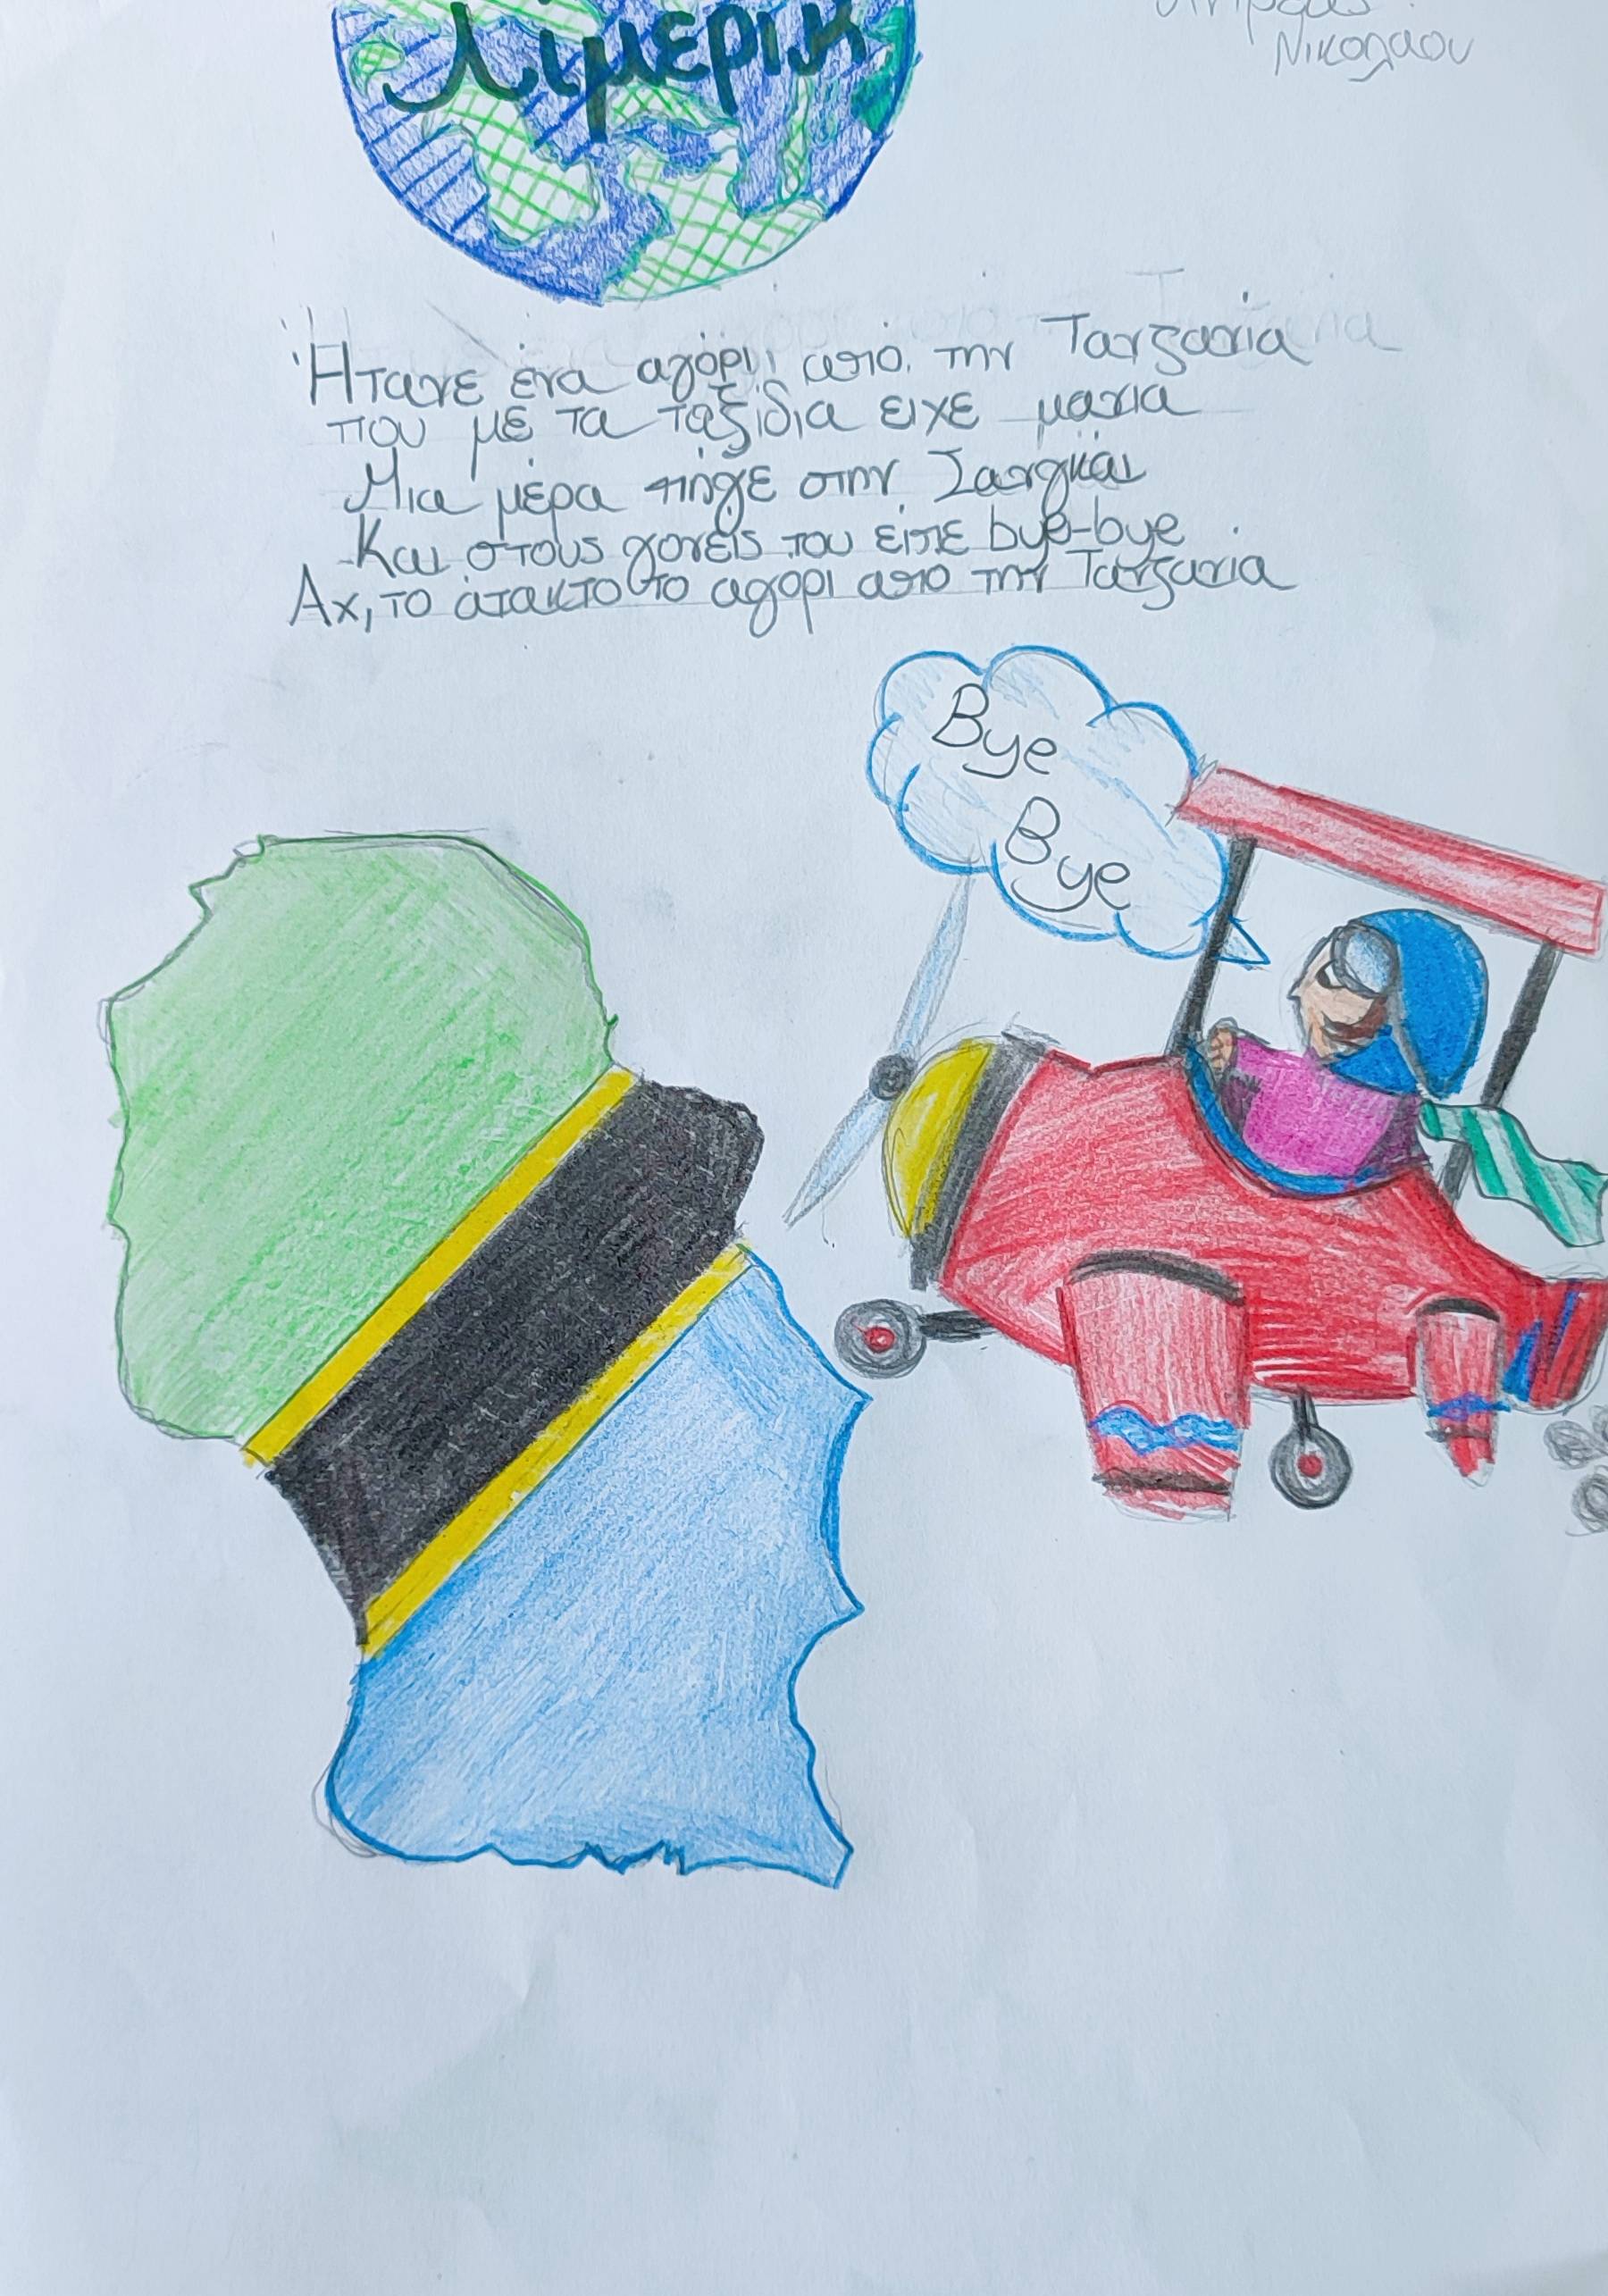 Λίμερικ
Νικολαου
Ήτανε ένα αγόρι από την Τανζανία
που με τα ταξίδια ειχε μανια
Μια μέρα πήγε στην Σανγκάι
Και στους γονείς του είπε bye-bye
Αχ, το άτακτο το αγορι απο την Τανζανια
Bye
Bye